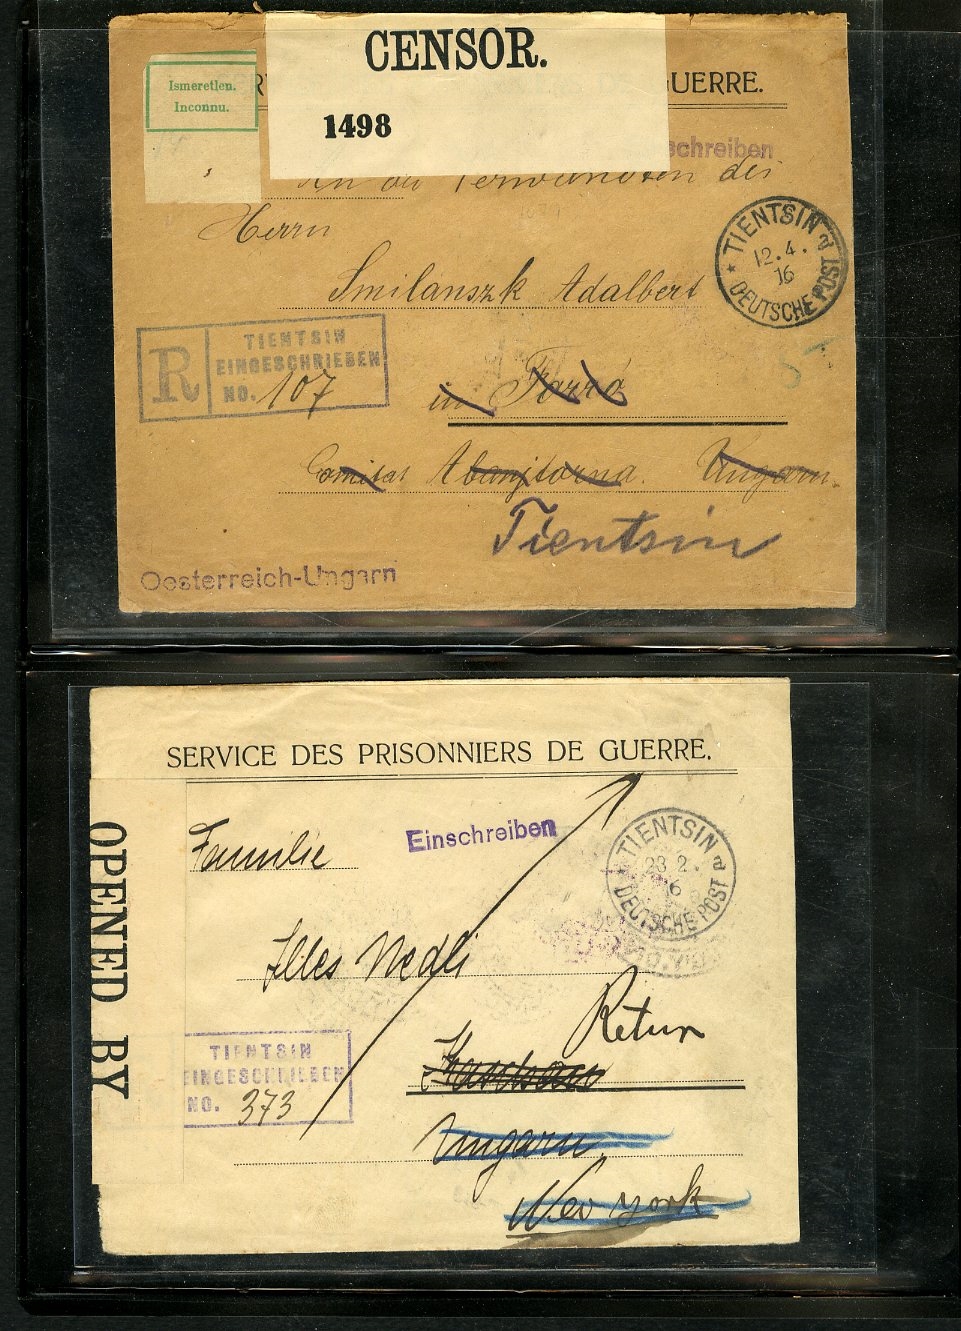 CENSOR.
1498
Ismeretlen.
Inconnu.
UERRE.
schreiben
An die Verwandten des
Herrn
Smilanszk Adalbert
TIENTSIN
12.4.
16
DEUTSCHE POST
R
TIENTSIN
EINGESCHRIEBEN
NO. 107
in
Comitat Abaujtorna. Ungarn.
Tientsin
Oesterreich-Ungarn
SERVICE DES PRISONNIERS DE GUERRE.
OPENED BY
Familie
Einschreiben
TIENTSIN
23 2.
16
DEUTSCHE POST
Illes Nedli
Retur
TIENTSIN
EINGESCHRIEBEN
NO. 373
Ungarn
New York